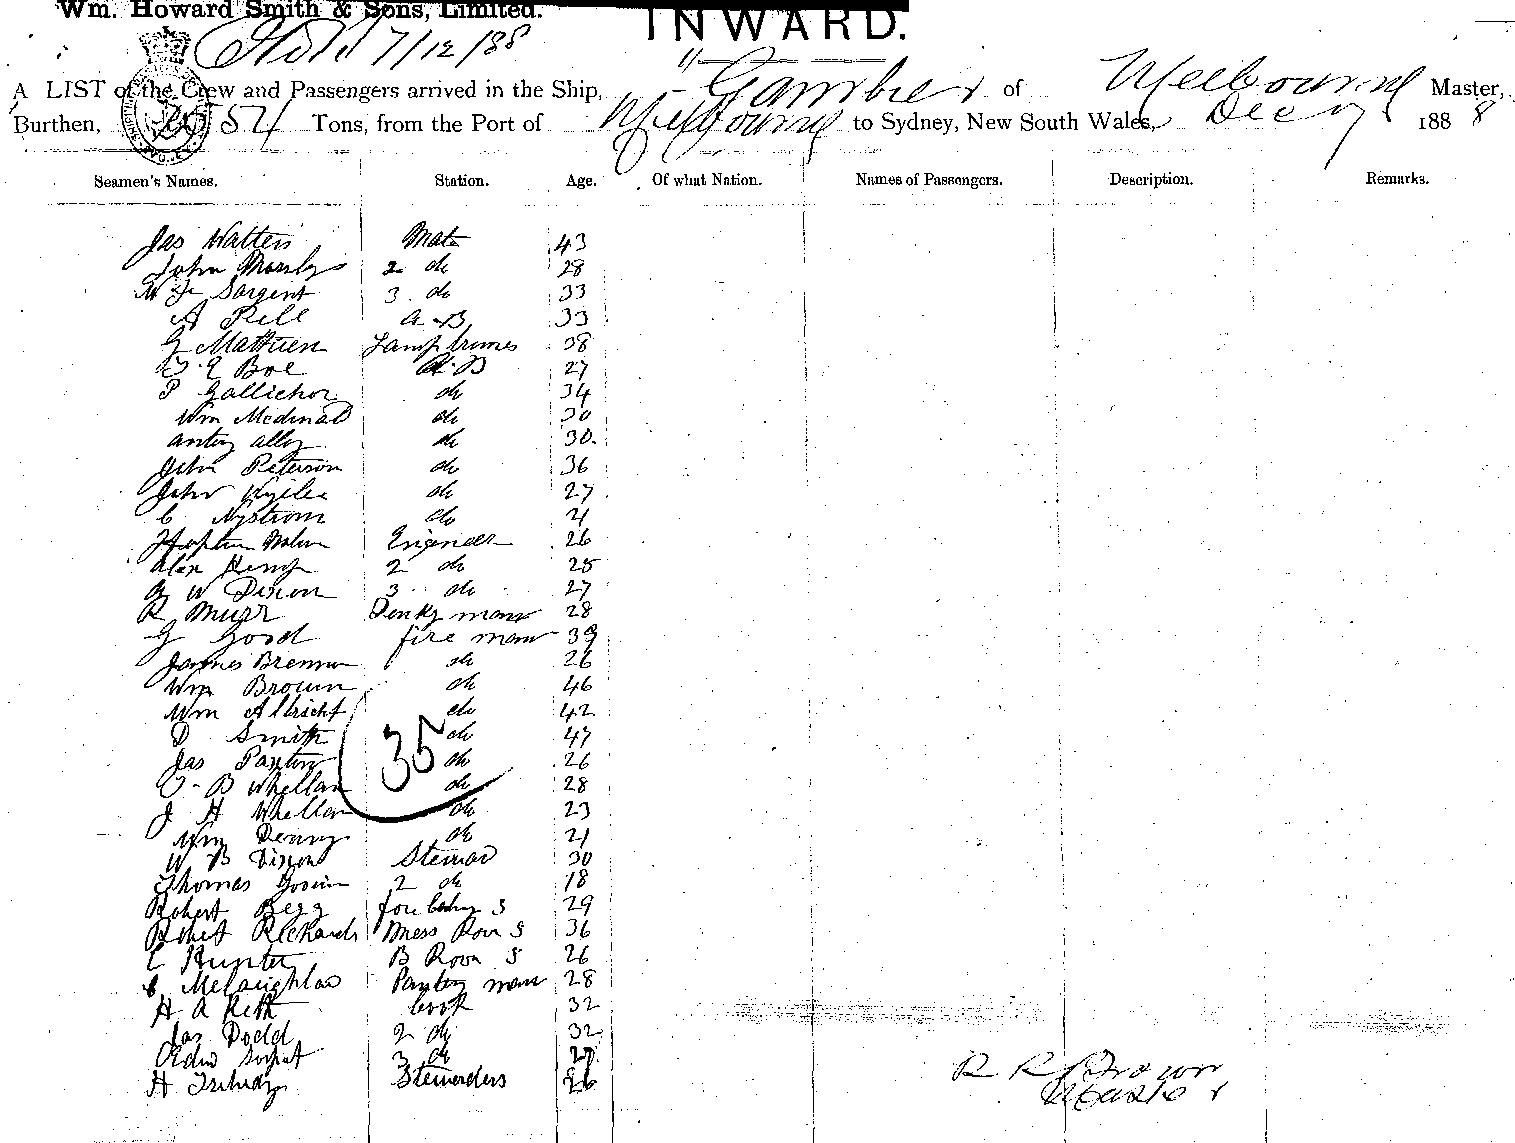 Wm. Howard Smith & Sons, Limited.
INWARD.
7/12/88
A LIST of the Crew and Passengers arrived in the Ship, "Gambier of Melbourne Master,
Burthen, Tons, from the Port of Melbourne to Sydney, New South Wales, Dec 7 1888
Seamen's Names. Station. Age. Of what Nation. Names of Passengers. Description. Remarks.
Jas Watters Mate 43
John 2 do 28
W Sargent 3. do 33
A Rill A-B 33
G Mathieu Lamp trimes 38
Boe A.B 27
P Gallichor do 34
Wm do 30
do 30.
John Peterson do 36
John do 27
C Nystrom do 21
Engineer 26
Alex Kemp 2 do 25
W Dixon 3. do 27
R Muir Donky man 28
G Good fire man 39
James Brennan do 26
Wm Brown do 46
Wm Albricht do 42
D Smith do 47
35
Jas Paxton do 26
B Whellan do 28
J H Whellan do 23
Wm Denny do 21
W B Dixon Steward 30
Thomas 2 do 18
Robert Begg S 29
Robert Richards Mess Room S 36
Hunter B Room S 26
McLaughlan Pantry man 28
H A Keth Cook 32
Jas Dodd 2 do 32
Edw 3 do 27
H Stewerdess 26
R R Brown
Master